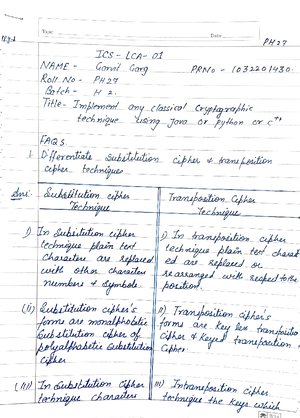 Date
PH27
ICS - LCA - 01
NAME - Garvit Garg PRNo - 1032201430.
Roll No - PH27
Batch - H 2.
Title - Implement any classical Cryptographic
technique using Java or Python or C++
FAQS
1. Differentiate substitution cipher & transposition
cipher techniques
Substitution cipher
Technique
Transposition Cipher
Technique
i) In Substitution cipher
technique plain text
characters are replaced
with other characters
numbers & symbols.
i) In transposition cipher
technique plain text charact
ed are replaced or
rearranged with respect to the
position.
(ii) Substitution cipher's
forms are monalphabetic
Substitution cipher &
polyalphabetic substitution
cipher
ii) Transposition cipher's
forms are key less transposition
cipher & keyed transposition
cipher.
(iii) In Substitution cipher
technique characters
iii) In transposition cipher
technique the keys which